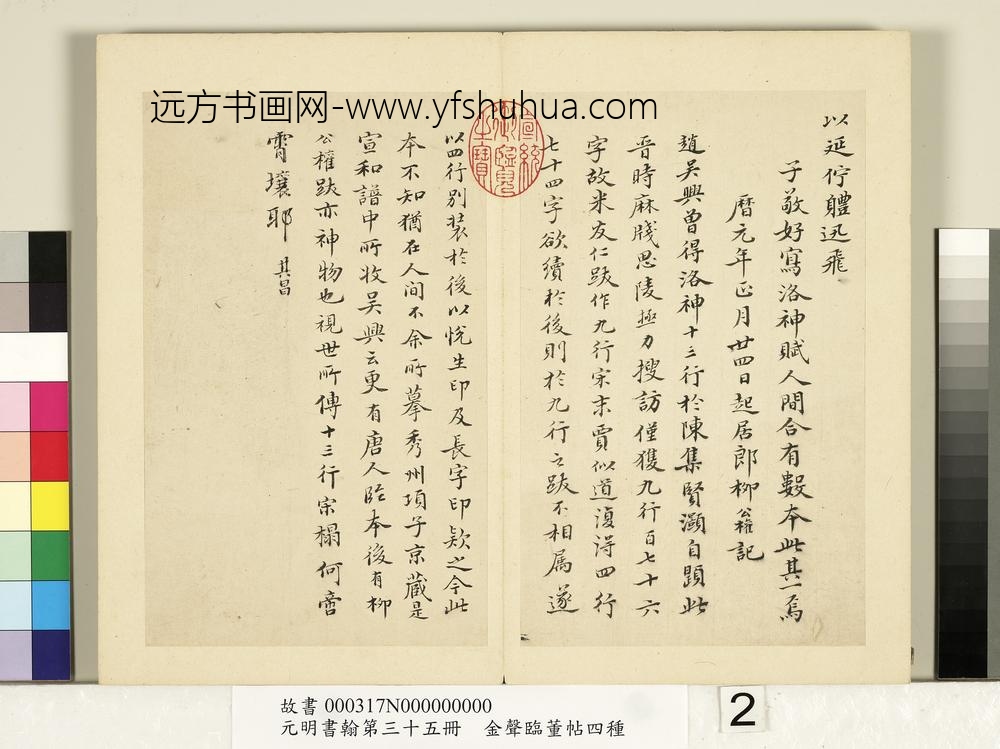 远方书画网-www.yfshuhua.com
以延佇體迅飛
子敬好寫洛神賦人間合有數本此其一焉
曆元年正月廿四日起居郎柳公權記
趙吳興曾得洛神十三行於陳集賢灝自題此
晉時麻牋思陵極力搜訪僅獲九行百七十六
字故米友仁跋作九行宋末賈似道復得四行
七十四字欲續於後則於九行之跋不相属遂
以四行別装於後以悅生印及長字印款之今此
本不知猶在人间不余所摹秀州項子京藏是
宣和譜中所收吴興云更有唐人臨本後有柳
公權跋亦神物也視世所傳十三行宋榻何啻
霄壤耶 其昌
宣統御覽之寶
故書 000317N000000000
元明書翰第三十五冊 金聲臨董帖四種
2